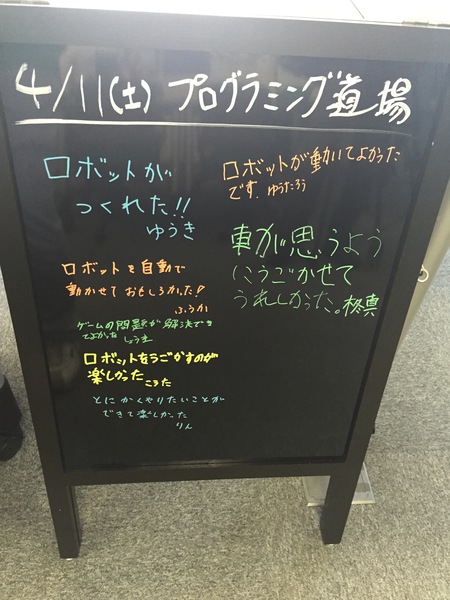 4/11(土) プログラミング道場
ロボットが
つくれた!!
ゆうき
ロボットを自動で
動かせておもしろかった!
ふうか
ゲームの問題が解決でき
てよかった しょうま
ロボットをうごかすのが
楽しかった ころた
とにかくやりたいことが
できて楽しかった
りん
ロボットが動いてよかった
です. ゆうたろう
車が思うよう
にうごかせて
うれしかった。柊真